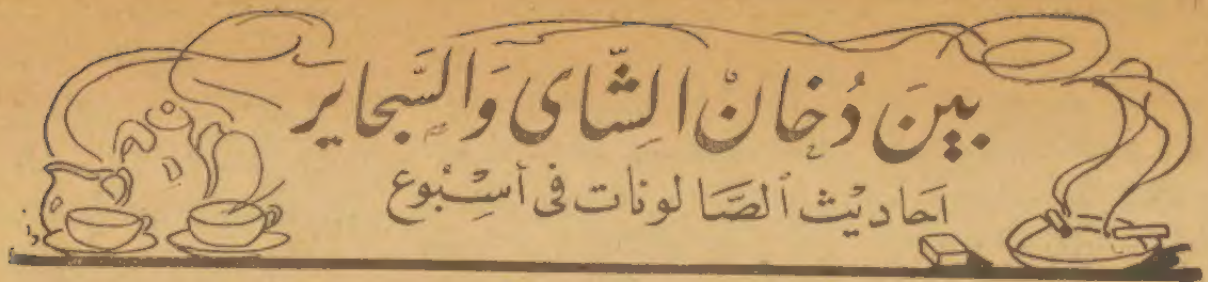 بينَ دُخانْ الشّاى وَالسَّجاير
احاديثْ الصَّالونات فى أسبْوع